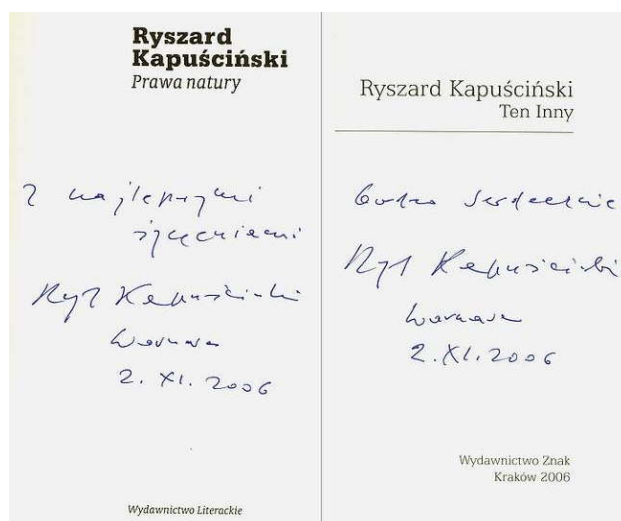 Ryszard
Kapuściński
Prawa natury
Z najlepszymi
życzeniami
Rys Kapuściński
Warszawa
2. XI. 2006
Wydawnictwo Literackie
Ryszard Kapuściński
Ten Inny
bardzo serdecznie
Rys Kapuściński
Warszawa
2. XI. 2006
Wydawnictwo Znak
Kraków 2006